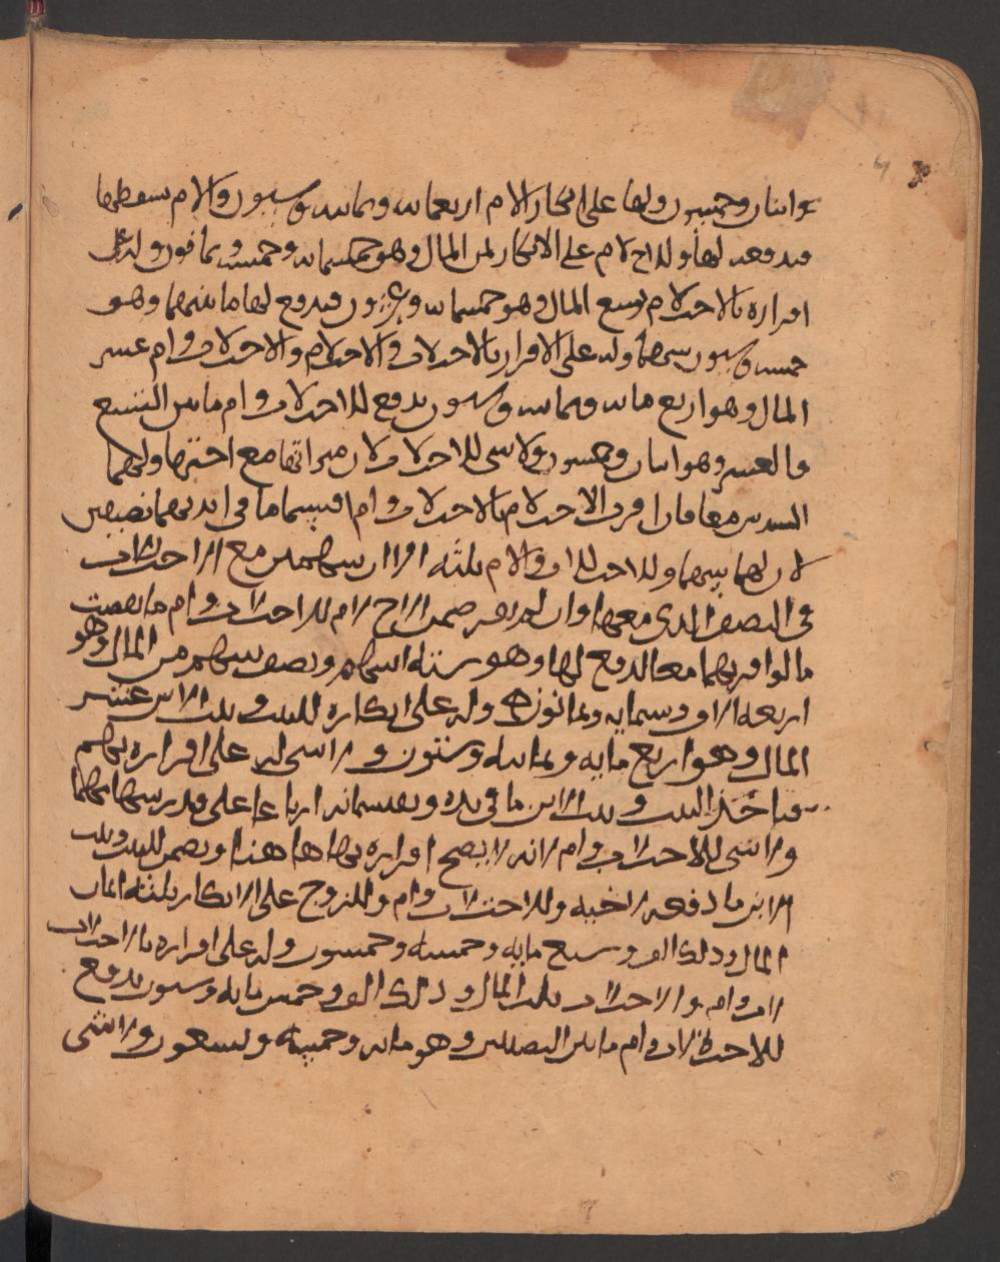 واثنان وخمسون ولها على انكار الام اربعمايه وثمانيه وسبعون والام سقطها
فيدفعه لها وللاخ لام على الانكار ثمن المال وهو خمسمايه وخمسه وثمانون وله على
اقراره بالاخت لام تسع المال وهو خمسمايه وعشرون فيدفع لها ما بينهما وهو
خمسه وستون سهما وله على الاقرار بالاخت لاب والاخت لام والاخت لاب وام عشر
المال وهو اربع مايه وثمانيه وستون يدفع للاخت لاب وام ما بين التسع
والعشر وهو اثنان وخمسون ولا شى للاخت لاب لان ميراثها مع اختها ولهما
السدس معا فان اقرت الاخت لام بالاخت لاب وام اقتسما ما في ايديهما نصفين
لان لهما سهما وللاخت للاب والام ثلثه الا ان سهمين مع الاخت للاب
في النصف الذى معها وان لم يقر ضمن الاخ لام للاخت لاب وام ما نقصت
ما لو اقر بهما معا لدفع لها وهو سته اسهم ونصف سهم من المال وهو
اربعه الاف وستمايه وثمانون وله على انكاره للبنت وبنت الابن عشر
المال وهو اربع مايه وثمانيه وستون ولا شى له على اقراره بهم
فياخذ البنت وبنت الابن ما في يده ويقتسمانه ارباعا على قدر سهامهما
ولا شى للاخت لاب وام لانه لا يصح اقراره بها هاهنا ويضمن للبنت وبنت
الابن ما دفعه لاخيه وللاخت لاب وام وللزوج على الانكار ثلثة اثمان
المال وذلك الف وسبع مايه وخمسه وخمسون وله على اقراره بالاخت لاب
لاب وام والاخت لاب ثلث المال وذلك الف وخمس مايه وستون يدفع
للاخت لاب وام ما بين النصيبين وهو مايه وخمسه وتسعون ولا شى